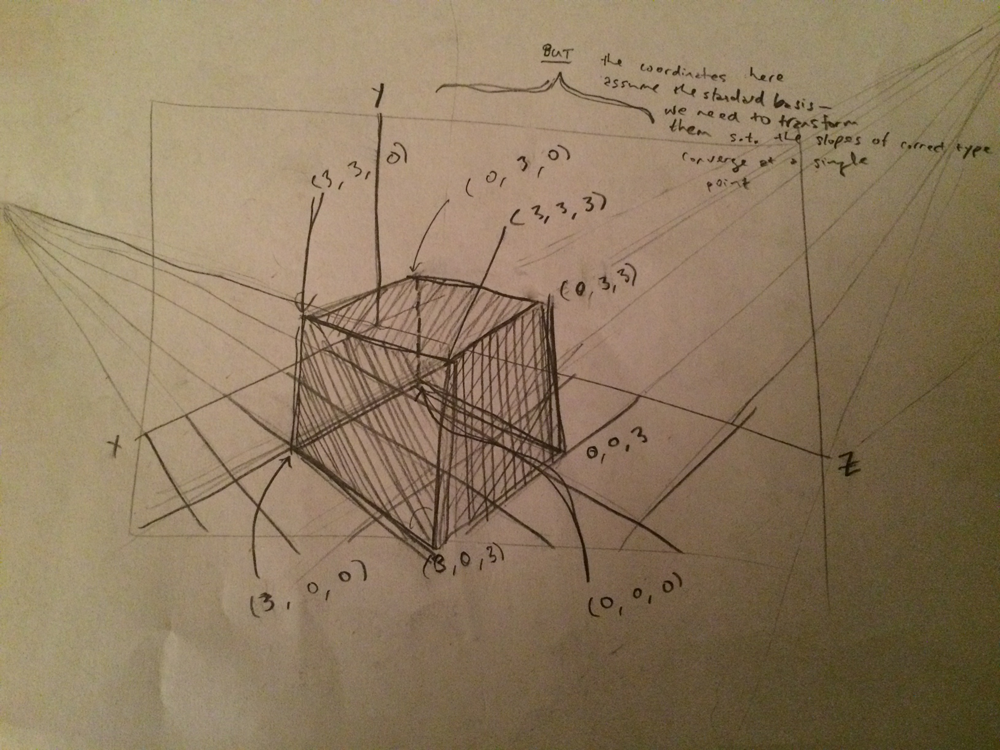 BUT the coordinates here
assume the standard basis —
we need to transform
them s.t. the slopes of correct type
converge at a single
point
Y
(3, 3, 0)
(0, 3, 0)
(3, 3, 3)
(0, 3, 3)
X
0, 0, 3
Z
(3, 0, 3)
(3, 0, 0)
(0, 0, 0)